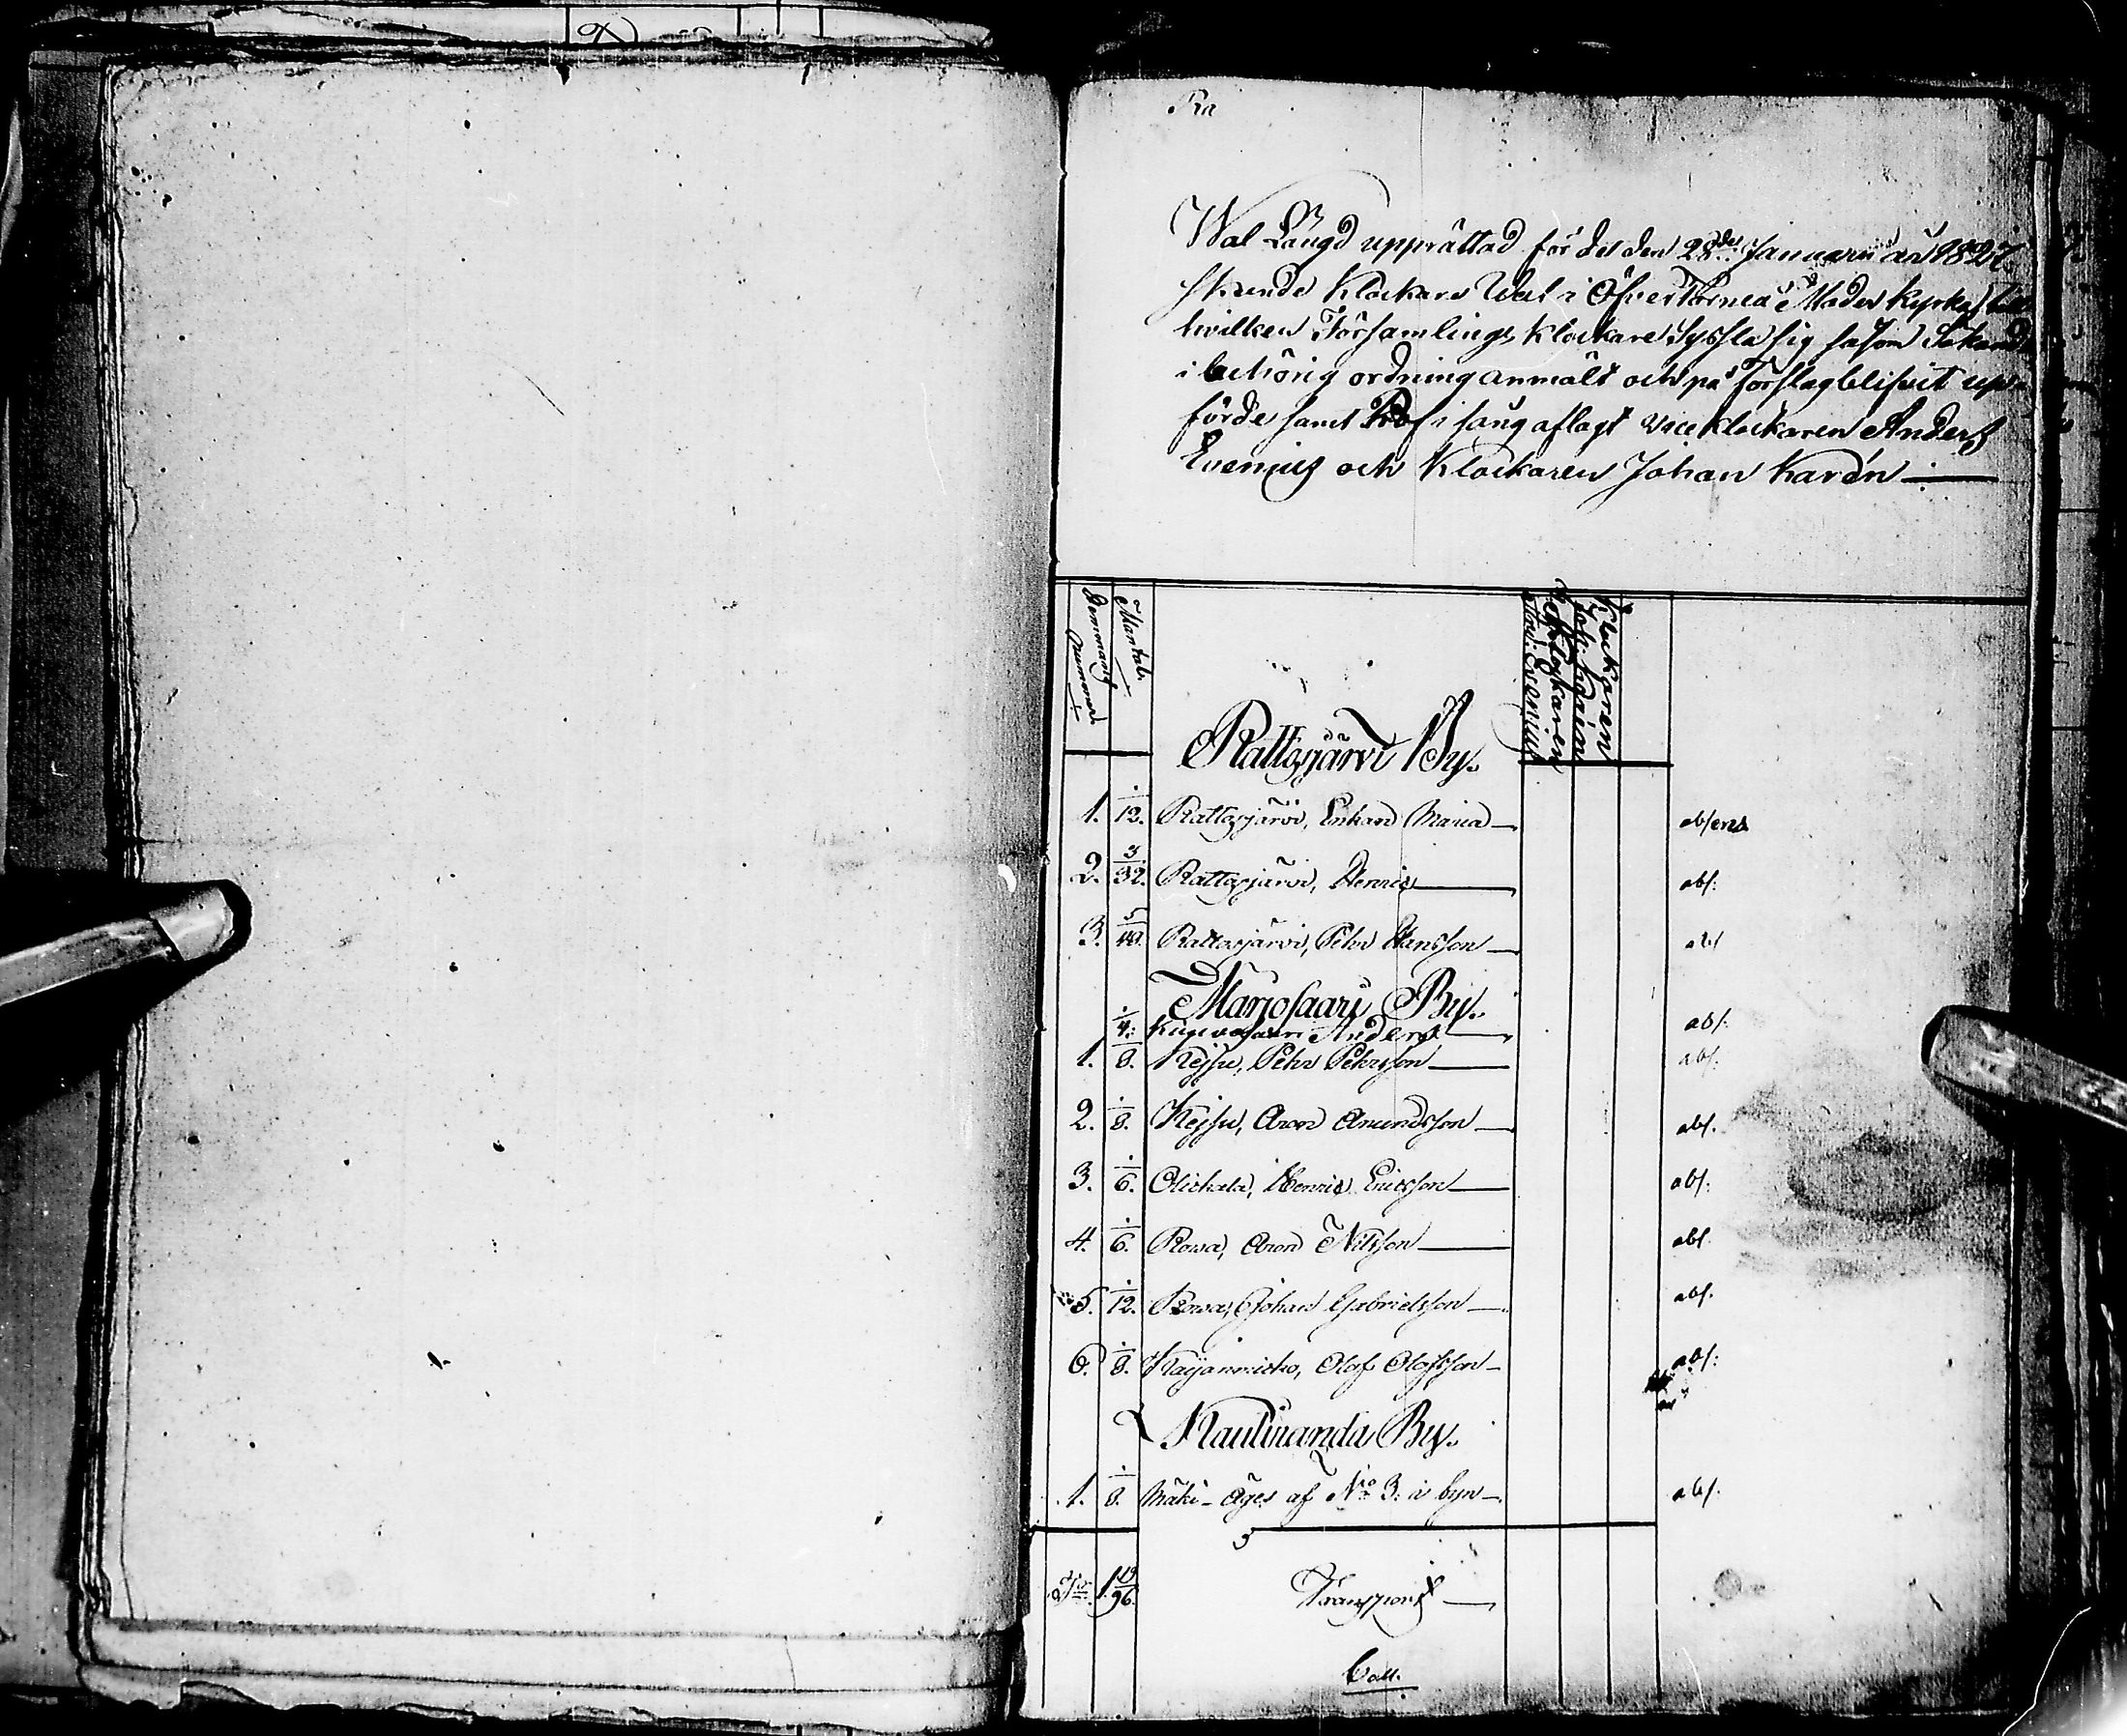 Ra
Wal Längd upprättad för det den 28de Januarii år 1827
skeende Klockare Wal i Öfver Torneå Moder Kyrka, till
hvilken Församlings Klockare Syssla sig såsom Sökande
i behörig ordning anmält och på Förslag blifvit upp-
förde samt Prof i sång aflagt Vice Klockaren Anders
Evenius och Klockaren Johan Karén
Hemmans Nummer
Mantal.
Vice Klockaren And: Evenius
Klockaren Joh: Karén
Rattosjärvi By.
1. 1/12. Rattosjärvi, Enkan Maria absens
2. 3/32. Rattosjärvi, Henric abs:
3. 5/48. Rattosjärvi, Pehr Hansson abs
Marjosaari By.
1/4: Anders abs:
1. 1/8. Kejsu, Pehr Pehrsson abs:
2. 1/8. Kejsu, Aron Amundsson abs.
3. 1/6. Olickala, Henric Ericsson abs:
4. 1/6. Rowa, Aron Nilsson abs.
5. 1/12. Rowa, Johan Gabrielsson abs.
6. 1/8. Olof Olofsson abs:
Kauliranda By.
1. 1/8. Mäki- äges af No 3. i byn abs.
1 19/96. Transport